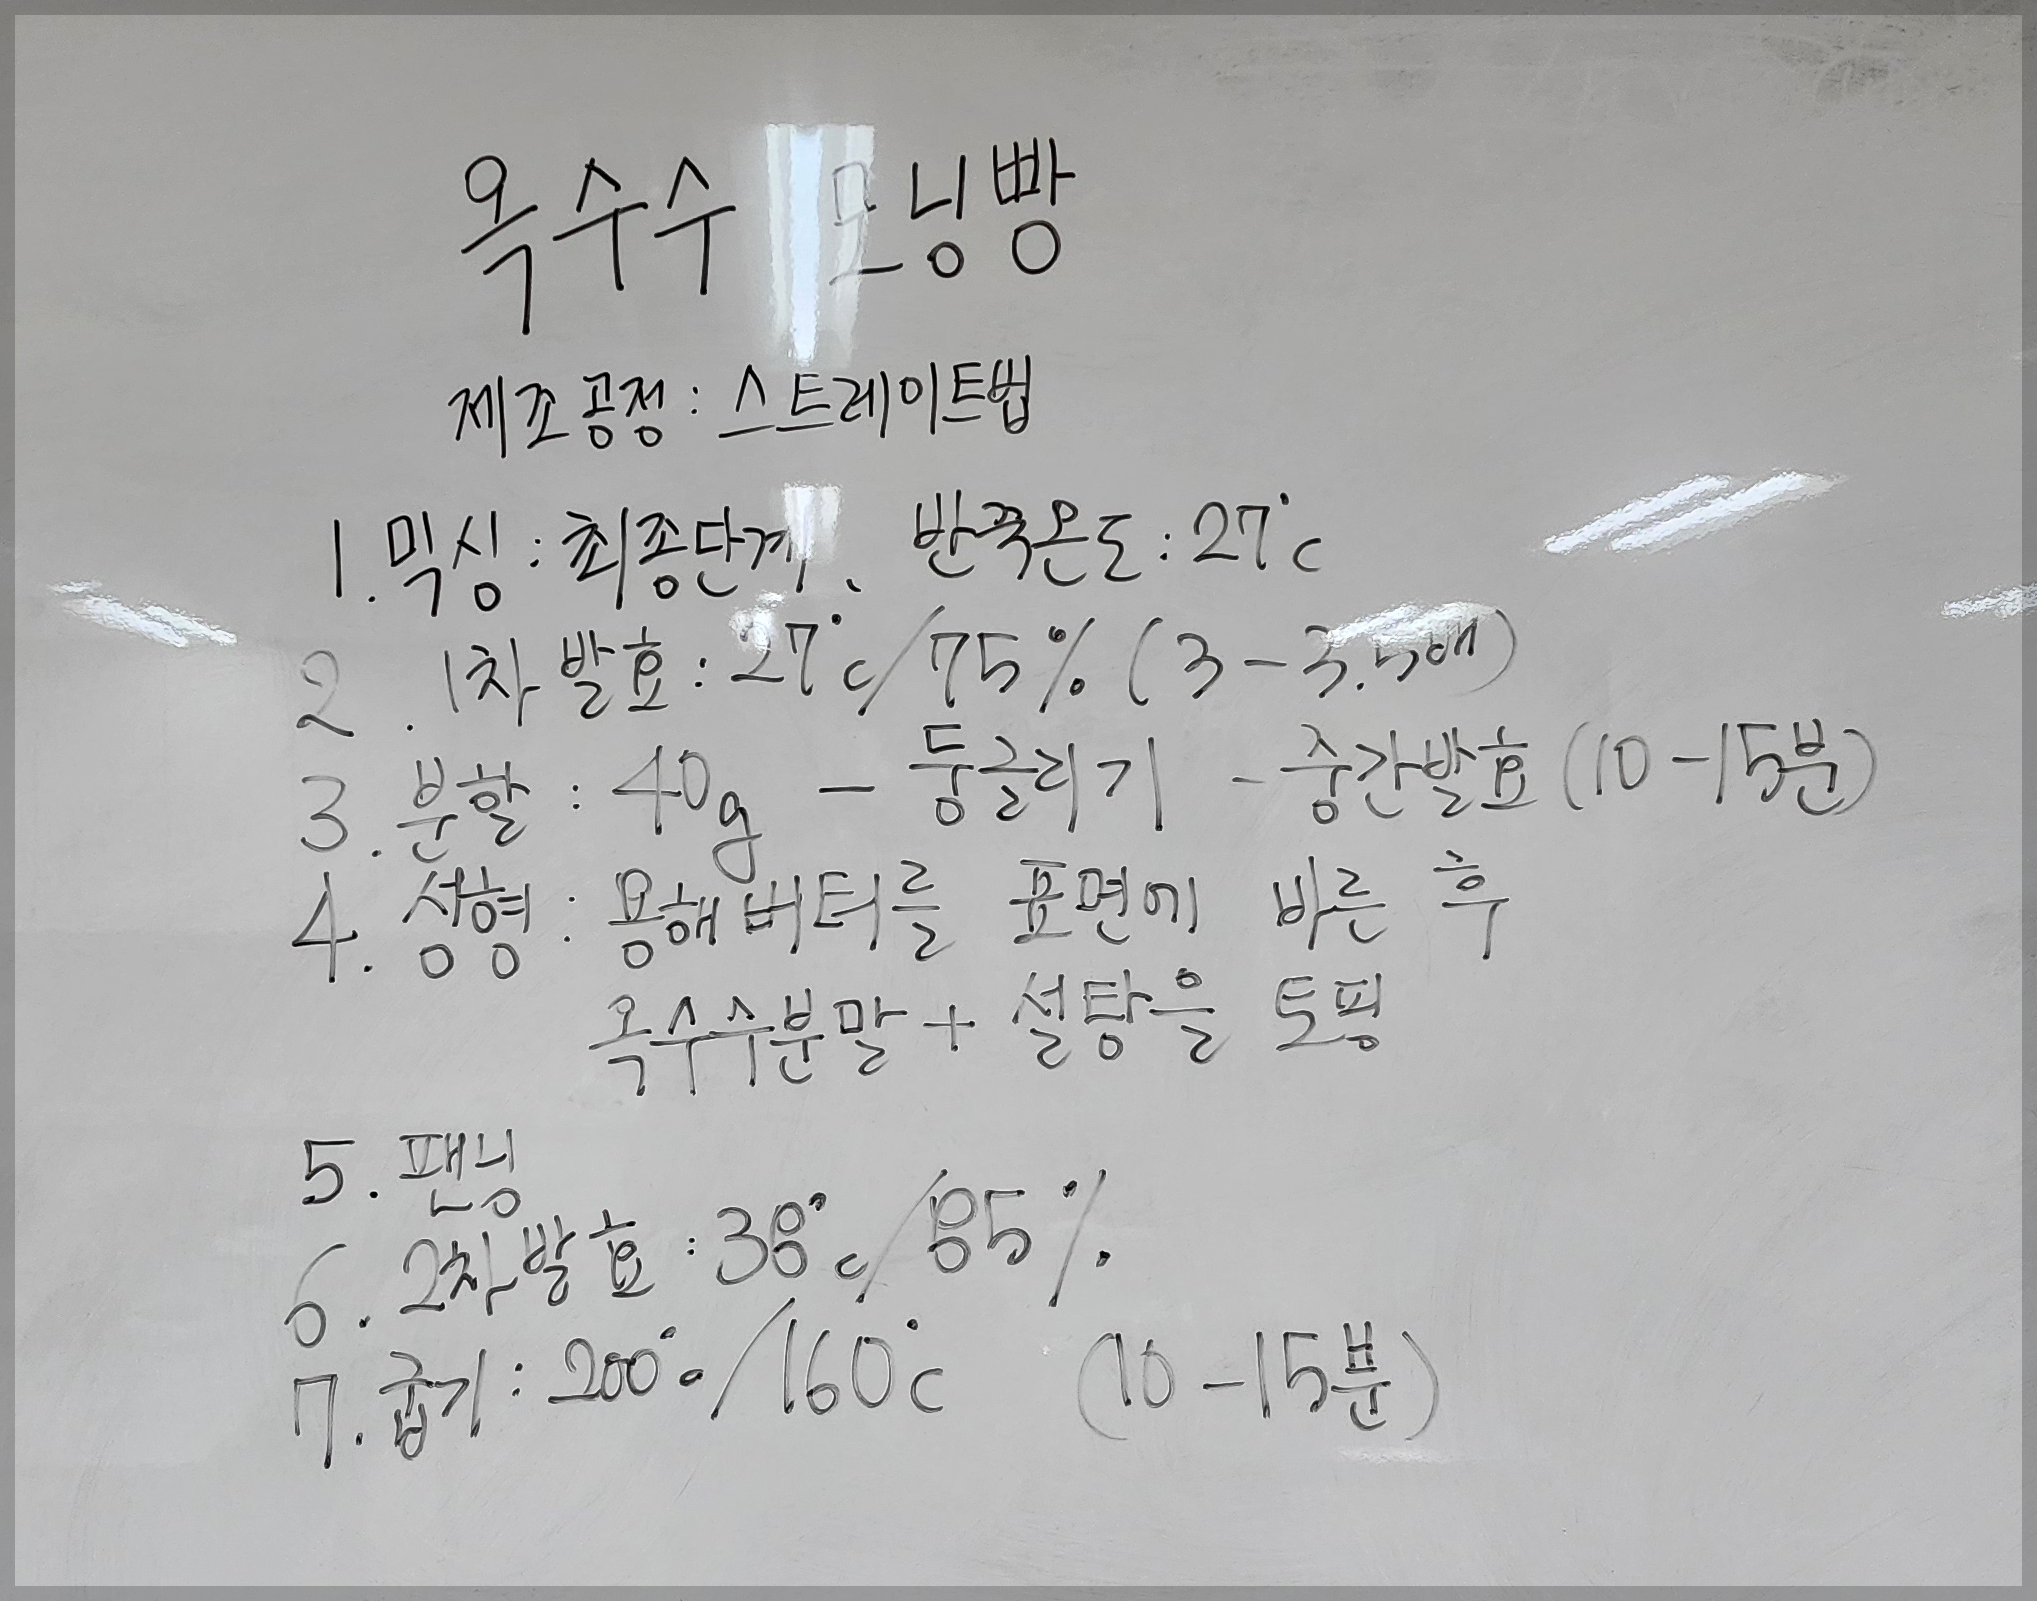 옥수수 모닝빵
제조공정 : 스트레이트법
1. 믹싱 : 최종단계, 반죽온도 : 27°c
2. 1차발효 : 27°c/75% (3-3.5배)
3. 분할 : 40g - 둥글리기 - 중간발효 (10-15분)
4. 성형 : 용해버터를 표면에 바른 후
옥수수분말 + 설탕을 토핑
5. 팬닝
6. 2차발효 : 38°c/85%
7. 굽기 : 200°c/160°c (10-15분)